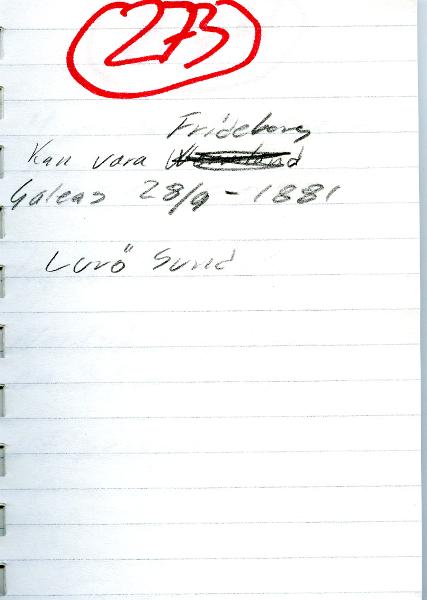 273
Frideborg
Kan vara
Galeas 28/9 - 1881
Lurö Sund